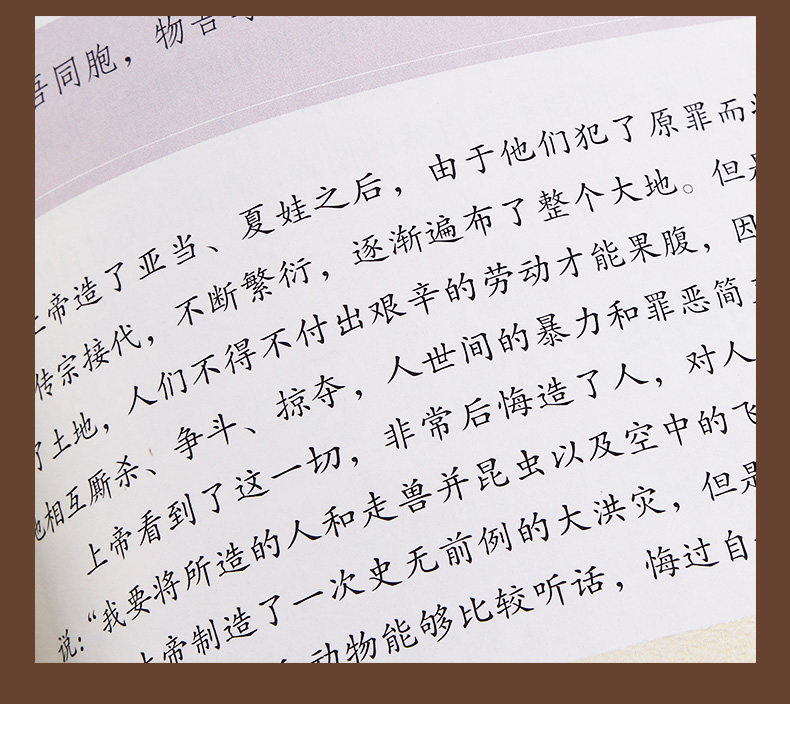 吾同胞，物吾
上帝造了亚当、夏娃之后，由于他们犯了原罪而
传宗接代，不断繁衍，逐渐遍布了整个大地。但是
了土地，人们不得不付出艰辛的劳动才能果腹，因
地相互厮杀、争斗、掠夺，人世间的暴力和罪恶简直
上帝看到了这一切，非常后悔造了人，对人
说：“我要将所造的人和走兽并昆虫以及空中的飞
上帝制造了一次史无前例的大洪灾，但是
动物能够比较听话，悔过自